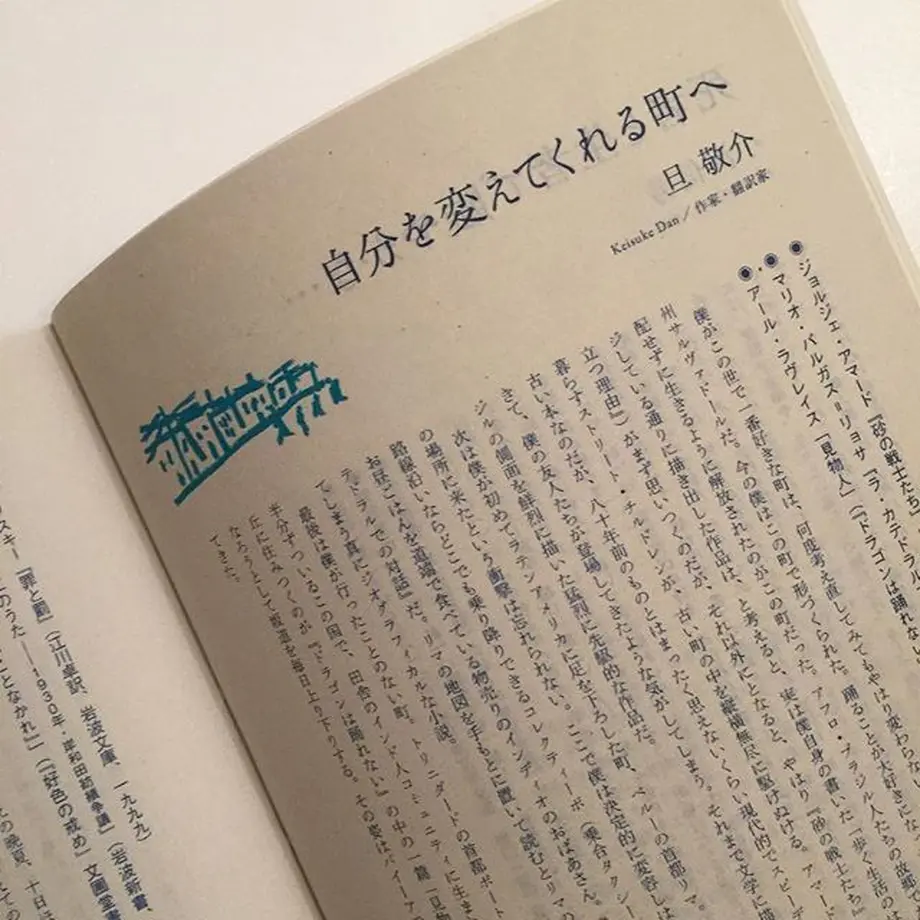 自分を変えてくれる町へ
旦 敬介
Keisuke Dan／作家・翻訳家
ジョルジェ・アマード『砂の戦士たち
マリオ・バルガス＝リョサ『ラ・カテドラル
アール・ラヴレイス「見物人」（『ドラゴンは踊れない
僕がこの世で一番好きな町は、何度考え直してみてもやはり変わらない
州サルヴァドールだ。今の僕はこの町で形づくられた。踊ることが大好きにな
配せずに生きるように解放されたのがこの町だった。アフロ・ブラジル人たちの故郷
ジルの側面を鮮烈に描いた猛烈に先駆的な作品だ。
きて、僕の友人たちが登場してきたような気がしてしまう。それまで文学に
古い本なのだが、八十年前のものとはまったく思えないくらい現代的でスピー
暮らすストリート・チルドレンが、古い町の中を縦横無尽に駆けぬける。アマー
立つ理由』）がまず思いつくのだが、それ以外にとなると、やはり『砂の戦士たち
ジしている通りに描き出した作品は、と考えると、実は僕自身の書いた「歩く生活の
次は僕が初めてラテンアメリカに足を下ろした町、ペルーの首都リマ。
の場所に来たという衝撃は忘れられない。ここで僕は決定的に変容し
路線沿いならどこでも乗り降りできるコレクティーボ（乗合タクシー
お昼ごはんを道端で食べている物売りのインディオのおばあさん。
テドラルでの対話』だ。リマの地図を手もとに置いて読むとリマの
てしまう真にジオグラフィカルな小説。
最後は僕が行ったことのない町。トリニダードの首都ポート
半分ずついるこの国で、田舎のインド人コミュニティに生ま
丘に住みつくのが『ドラゴンは踊れない』の中の一篇「見物
なろうとして坂道を毎日上り下りする。その姿はバイーア
てきた。
スキー『罪と罰』（江川卓訳、岩波文庫、一九九九）
このうた──1930年・岸和田紡績争議』（岩波新書、
となかれ』」（『好色の戒め』文圃堂書